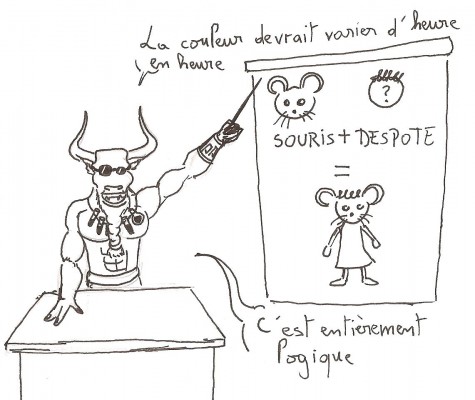 La couleur devrait varier d'heure
en heure
?
SOURIS + DESPOTE
=
C'est entièrement
logique